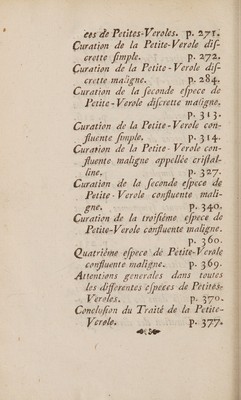 ces de Petites-Veroles. p. 271.
Curation de la Petite-Verole dis-
crette simple. p. 272.
Curation de la Petite-Verole dis-
crette maligne. p. 284.
Curation de la seconde espece de
Petite-Verole discrette maligne.
p. 313.
Curation de la Petite-Verole con-
fluente simple. p. 314.
Curation de la Petite-Verole con-
fluente maligne appellée cristal-
line. p. 327.
Curation de la seconde espece de
Petite-Verole confluente mali-
gne. p. 340.
Curation de la troisiéme espece de
Petite-Verole confluente maligne.
p. 360.
Quatriéme espece de Petite-Verole
confluente maligne. p. 369.
Attentions generales dans toutes
les differentes especes de Petites-
Veroles. p. 370.
Conclusion du Traité de la Petite-
Verole. p. 377.